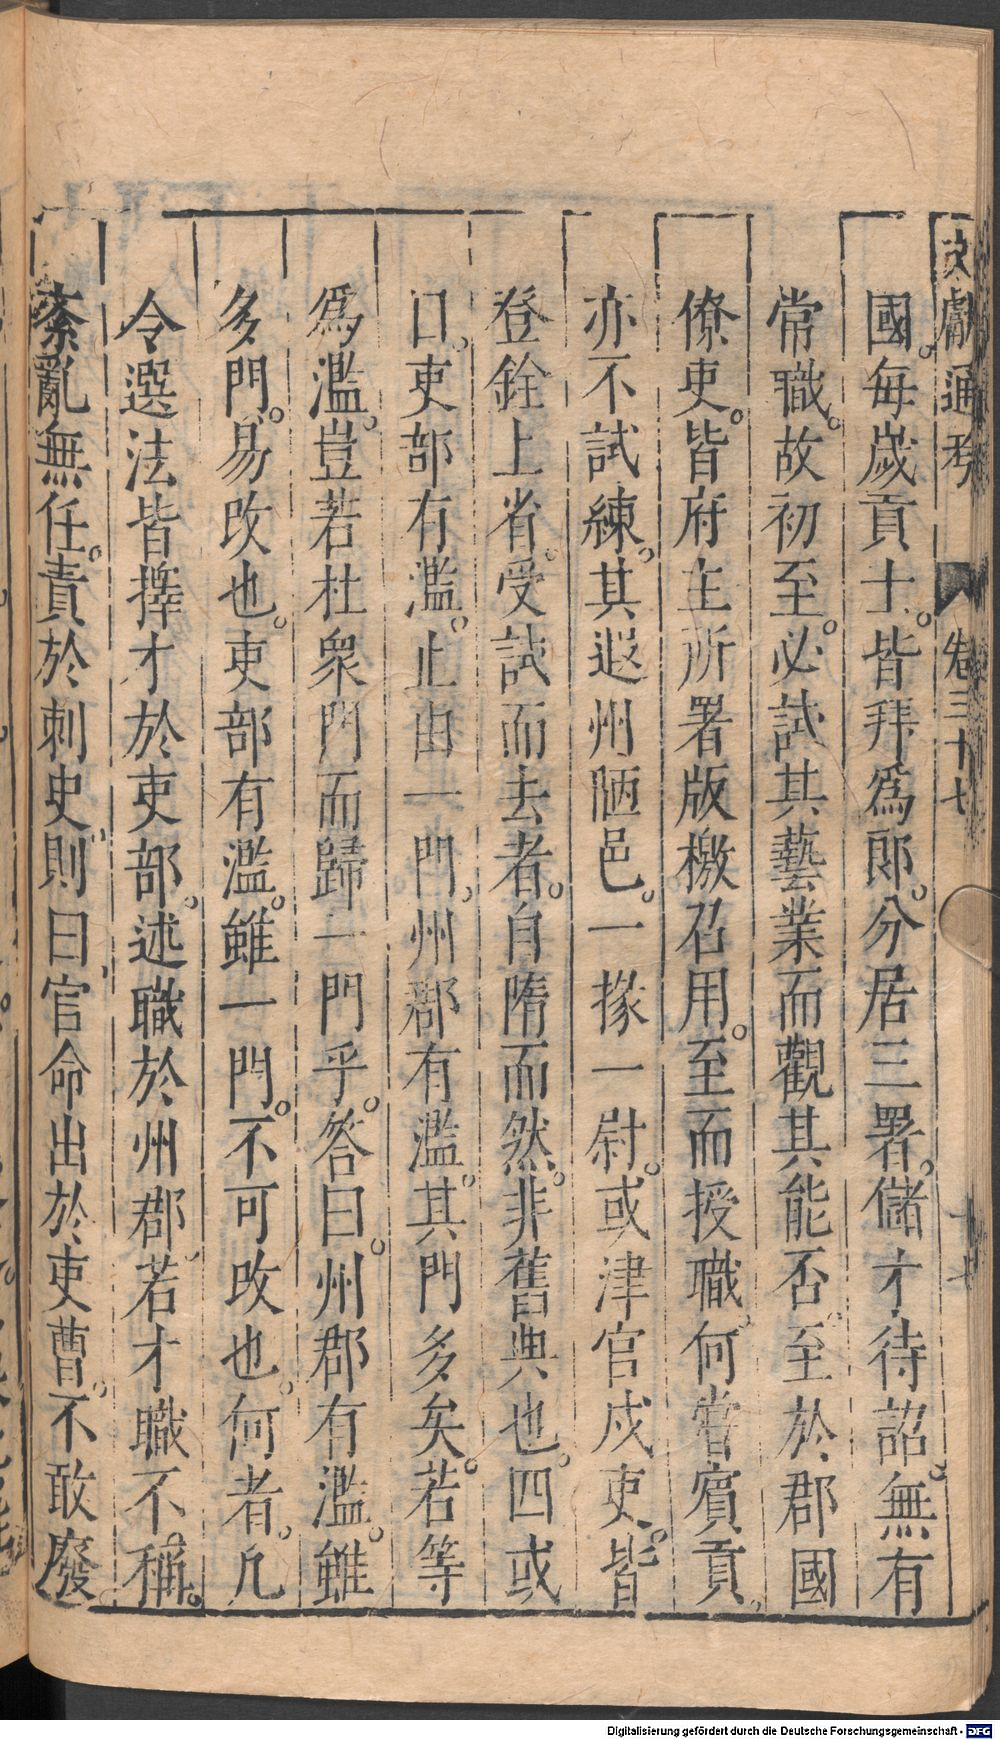 文獻通考 卷三十七 十七
國每歲貢士。皆拜爲郎。分居三署。儲才待詔。無有
常職。故初至。必試其藝業而觀其能否。至於郡國
僚吏。皆府主所署版檄召用。至而授職。何嘗賓貢。
亦不試練。其遐州陋邑。一掾一尉。或津官戍吏。皆
登銓上省。受試而去者。自隋而然。非舊典也。四或
曰。吏部有濫。止由一門。州郡有濫。其門多矣。若等
爲濫。豈若杜衆門而歸一門乎。答曰。州郡有濫。雖
多門。易改也。吏部有濫。雖一門。不可改也。何者。凡
令選法皆擇才於吏部。述職於州郡。若才職不稱。
紊亂無任。責於刺史則曰。官命出於吏曹。不敢廢
Digitalisierung gefördert durch die Deutsche Forschungsgemeinschaft - DFG